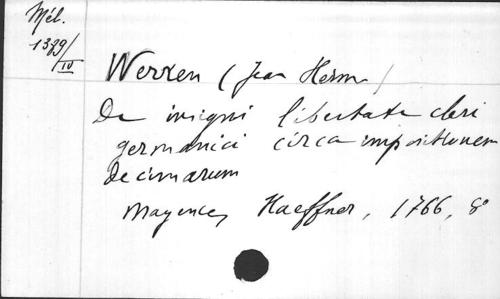 Mél.
1329/IV
Werren (Jean Herm)
De insigni libertate cleri
germanici circa impositionem
decimarum
Mayence, Haeffner, 1766, 8°